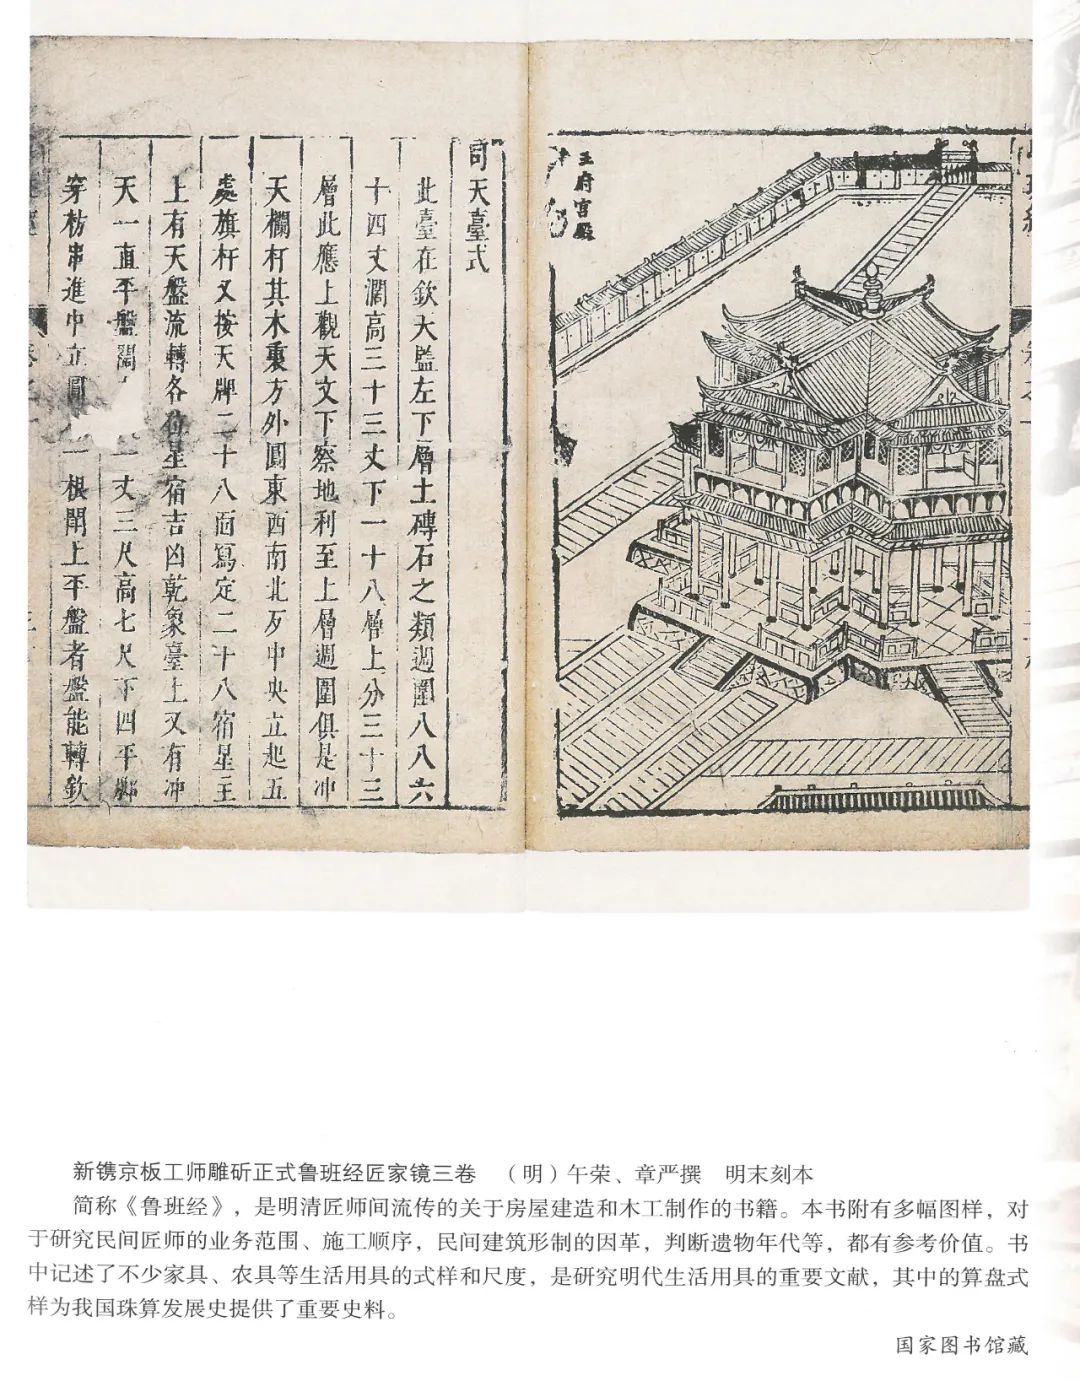 王府宮殿
司天臺式
此臺在欽天監左下層土磚石之類週圍八八六
十四丈濶高三十三丈下一十八層上分三十三
層此應上觀天文下察地利至上層週圍俱是冲
天欄杆其木裏方外圓東西南北及中央立起五
處旗杆又按天牌二十八面寫定二十八宿星主
上有天盤流轉各位星宿吉凶乾象臺上又有冲
天一直平盤濶
丈三尺高七尺下四平脚
穿枋串進中立圓
一根閗上平盤者盤能轉欽
新镌京板工师雕斫正式鲁班经匠家镜三卷 （明）午荣、章严撰 明末刻本
简称《鲁班经》，是明清匠师间流传的关于房屋建造和木工制作的书籍。本书附有多幅图样，对
于研究民间匠师的业务范围、施工顺序，民间建筑形制的因革，判断遗物年代等，都有参考价值。书
中记述了不少家具、农具等生活用具的式样和尺度，是研究明代生活用具的重要文献，其中的算盘式
样为我国珠算发展史提供了重要史料。
国家图书馆藏